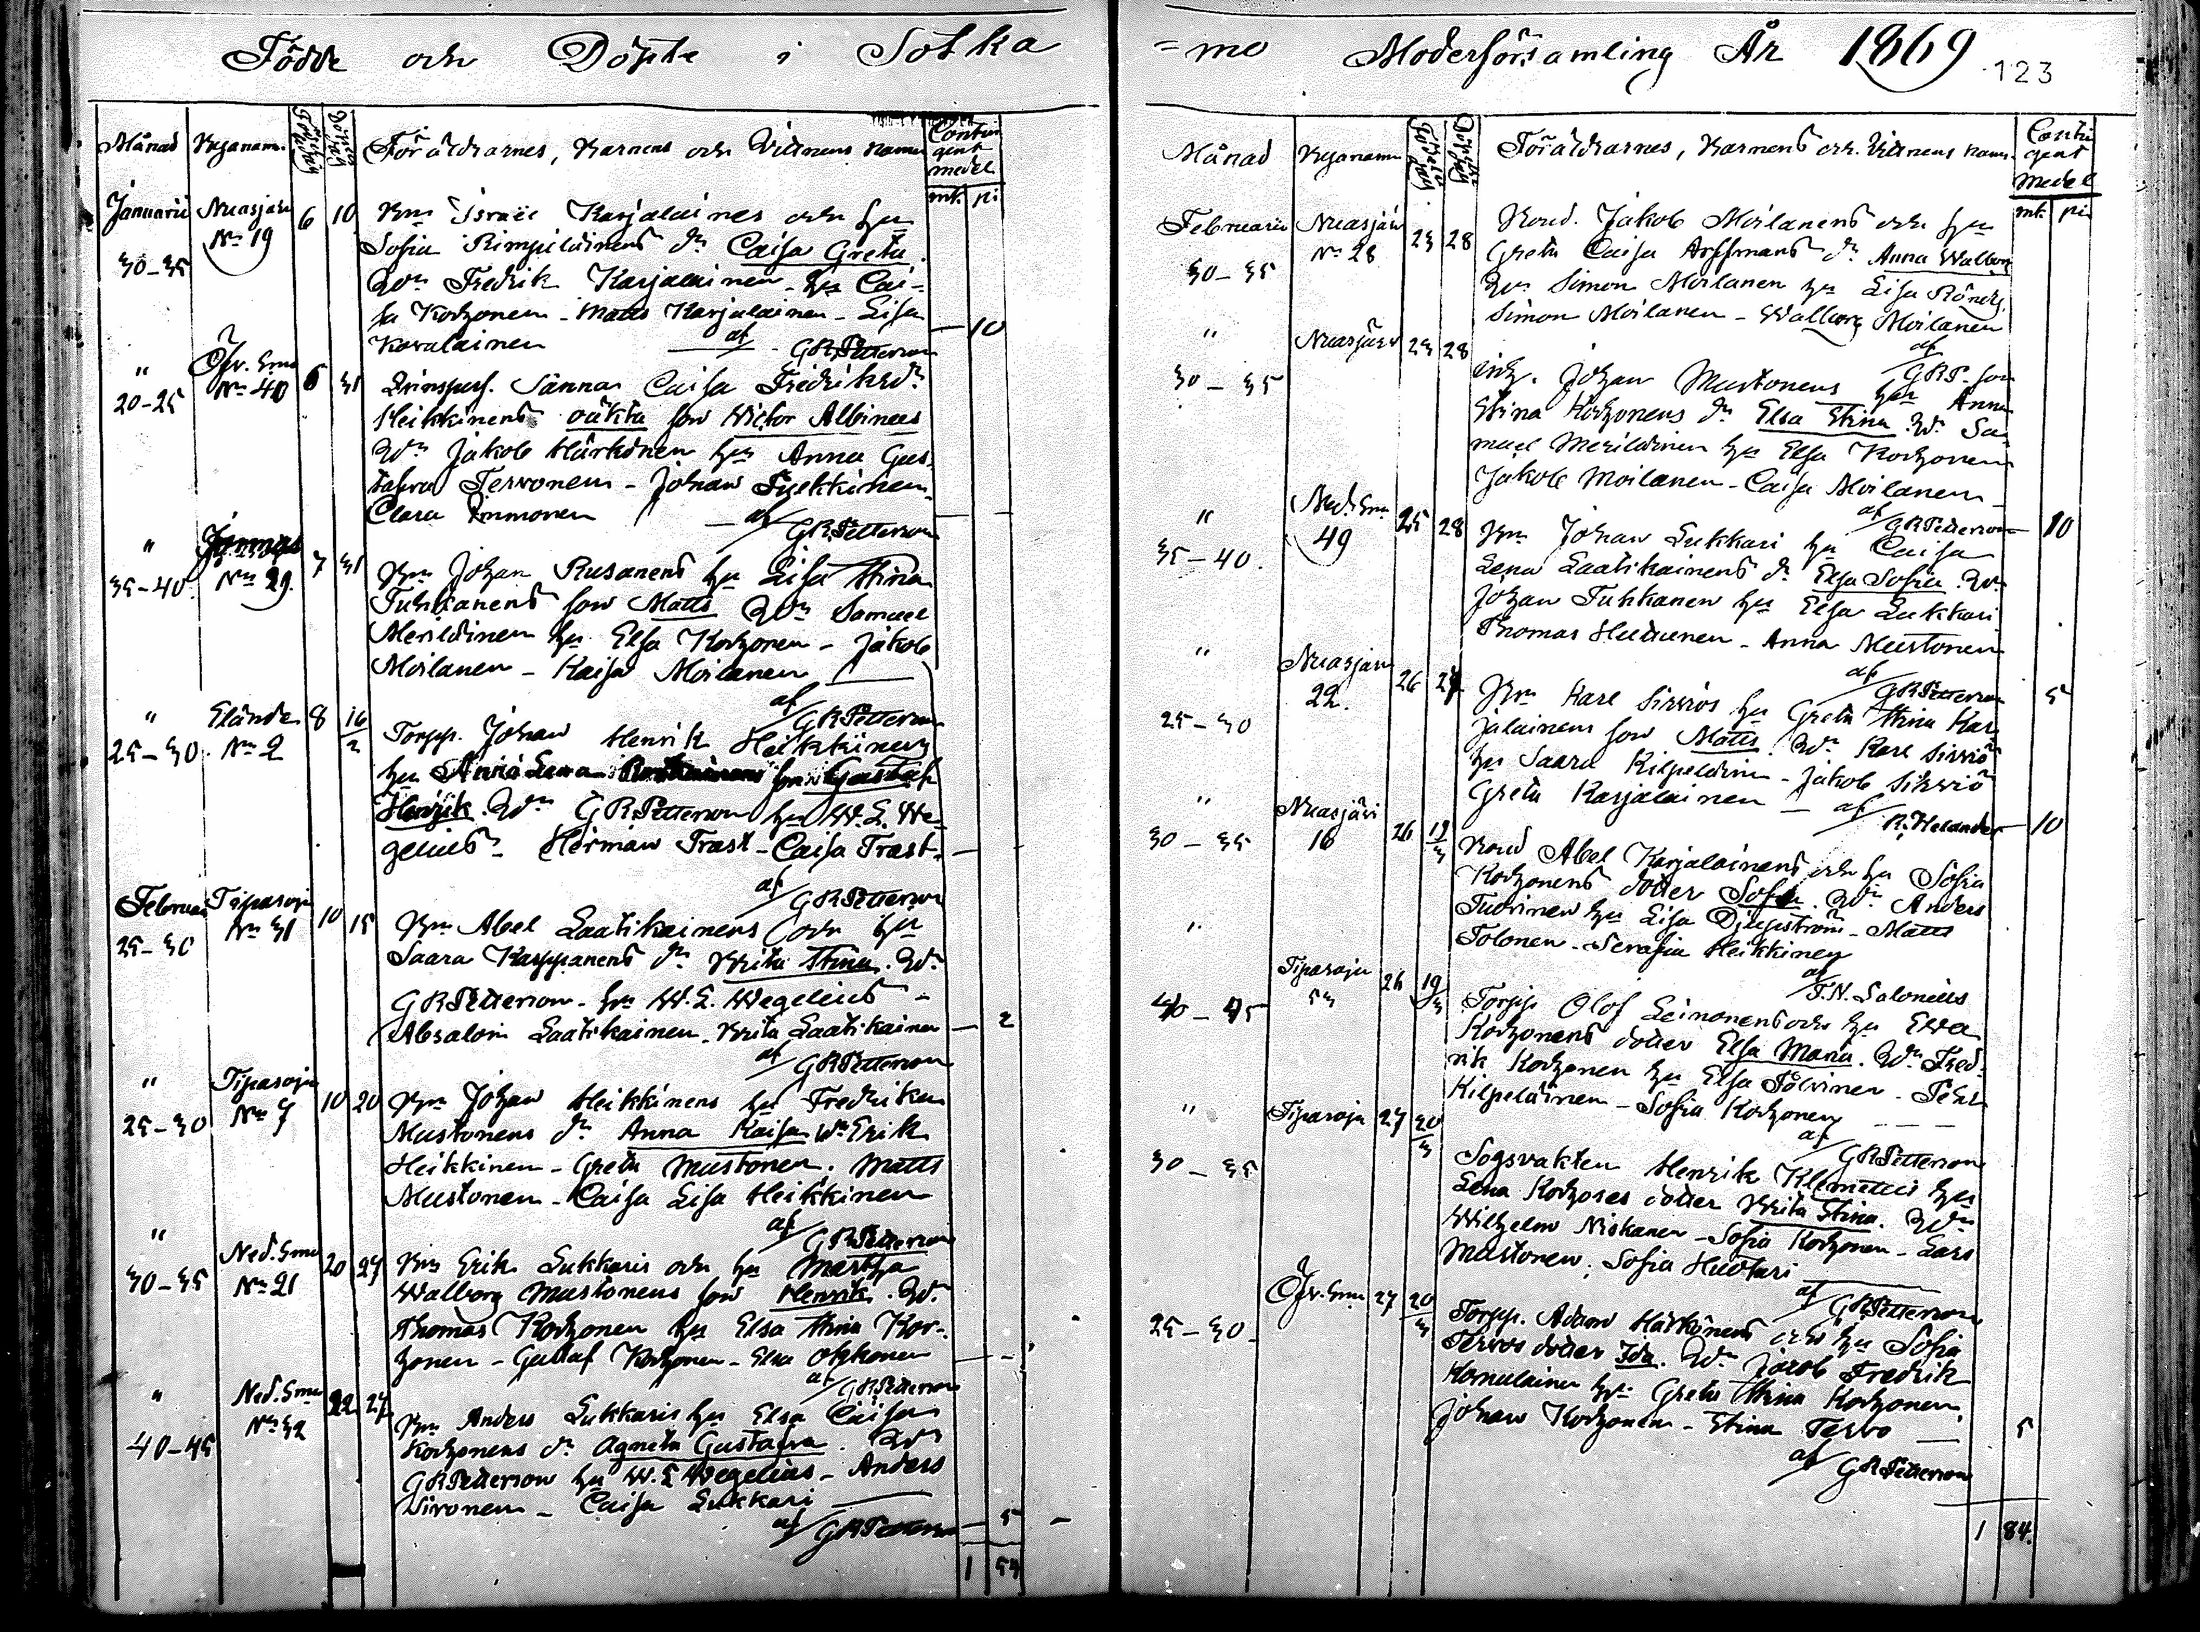 Födde och Döpte i Sotka
Månad
Byanamn
Föräldrarnes, Barnens och Vittnens namn
Contingent medel
mk. pi
Januarii Nuasjärvi 6 10 Bm Israel Karjalainens och hu
No 19 Sofia Kimpiläinens dr Caisa Greta.
30-35 Wn Fredrik Karjalainen - hu Cai-
sa Korhonen - Matts Karjalainen - Lisa
Kovalainen 10
af G R Petterson
" Öfv. Sma
20-25 No 40 6 31 Caisa Fredriksdr
Heikkinens oäkta son Victor Albinus
Wn Jakob Härkönen hu Anna Gus-
tafva Tervonen - Johan
Clara Immonen
af G R Petterson
" No 29. 7 31 Bm Johan Rusanens hu Lisa Stina
35-40. Tuhkanens son Matts Wn Samuel
Meriläinen hu Elsa Korhonen - Jakob
Moilanen - Kaisa Moilanen
af G R Petterson
" 8 16/2 Torpp. Johan Henrik Heikkinens
25-30. No 2 hu Anna Lena son Gustaf
Henrik. Wn G R Petterson hu W. E. We-
gelius - Herman Trast - Caisa Trast -
af G R Petterson
Februarii Tipasoja 10 15 Bm Abel Laatikainens och hu
25-30 No 31 Saara Karppanens dr Brita Stina. Wn
G R Petterson - hu W. E. Wegelius -
Absalom Laatikainen. Brita Laatikainen 2
af G R Petterson
" Tipasoja 10 20 Bm Johan Heikkinens hu Fredrika
25-30 No 7 Mustonens dr Anna Kaisa Wn Erik
Heikkinen - Greta Mustonen. Matts
Mustonen - Caisa Lisa Heikkinen
af G R Petterson
" Ned. Sma 20 27 Bm Erik Lukkaris och hu Martha
30-35 No 21 Walborg Mustonens son Henrik. Wn
Thomas Korhonen hu Elsa Stina Kor-
honen - Gustaf Korhonen - Elsa
af G R Petterson
" Ned. Sma 22 27 Bm Anders Lukkaris hu Elsa Caisa
40-45 No 32 Korhonens dr Agneta Gustafva. Wn
G R Petterson hu W. E Wegelius - Anders
Sironen - Caisa Lukkari
af G R Petterson 5
1 54
=mo Moderförsamling År 1869 123
Månad
Byanamn
Föräldrarnes, Barnens och Vittnens namn
Contingent Medel
mk. pi
Februarii Nuasjärvi 23 28 Bond. Jakob Moilanens och hu
No 28 Greta Caisa dr Anna Walborg
30-35 Wn Simon Moilanen hu Lisa
Simon Moilanen - Walborg Moilanen
af G R P-son
" Nuasjärvi 23 28 Inh. Johan Mustonens hu Anna
30-35 Stina Korhonens dr Elsa Stina. Wn Sa-
muel Meriläinen hu Elsa Korhonen
Jakob Moilanen - Caisa Moilanen -
af G R Petterson 10
" Ned. Sma 25 28 Bm Johan Lukkari hu Caisa
35-40. 49 Lena Laatikainens dr Elsa Sofia. Wn
Johan Tuhkanen hu Elsa Lukkari
Thomas Huttunen - Anna Mustonen
af G R Petterson 5
" Nuasjärvi 26 Bm Karl Sirviös hu Greta Stina Kar-
25-30 22. jalainens son Matts. Wn Karl Sirviö
hu Saara Kilpeläinen - Jakob Sirviö
Greta Karjalainen
af Helander 10
" Nuasjärvi 26 19/3 Bond Abel Karjalainens och hu Sofia
30-35 16 Korhonens dotter Sofia. Wn Anders
Tuovinen hu Lisa - Matts
Tolonen - Serafia Heikkinen
af Salonius
" Tipasoja 26 19/3 Torpp Olof Leinonens och hu Ewa
40-45 53 Korhonens dotter Elsa Maria. Wn Fred-
rik Korhonen hu Elsa Tolvinen - Pehr
Kilpeläinen - Sofia Korhonen
af G R Petterson
" Tipasoja 27 20/3 Henrik Klemetti hu
30-35 Lena Korhoses dotter Brita Stina. Wn
Wilhelm Niskanen - Sofia Korhonen - Lars
Mustonen. Sofia Huotari
af G R Petterson
Öfv. Sma 27 20/3 Torpp. Adam Härkönens och hu Sofia
25-30 Tervos dotter Ida. Wn Jacob Fredrik
Komulainen hu Greta Stina Korhonen,
Johan Korhonen - Stina Tervo 5
af G R Petterson
1 84.